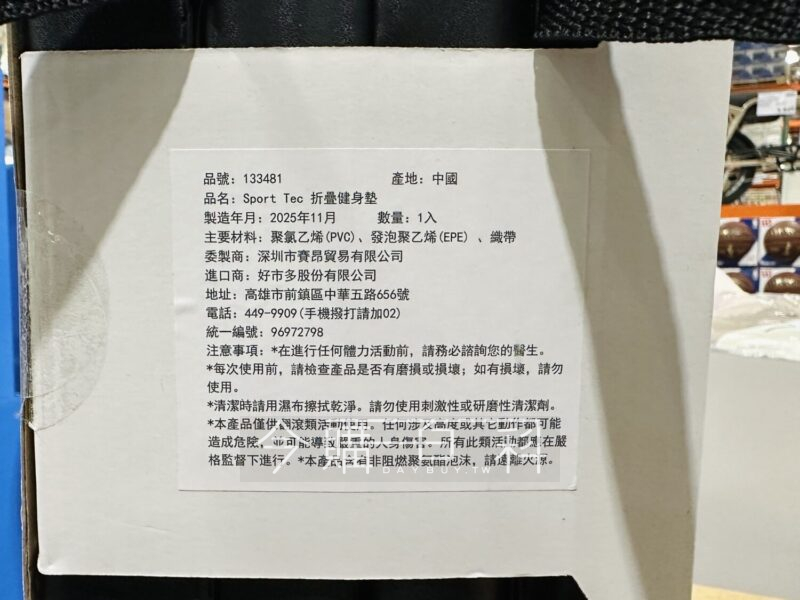 品號：133481 產地：中國
品名：Sport Tec 折疊健身墊
製造年月：2025年11月 數量：1入
主要材料：聚氯乙烯(PVC)、發泡聚乙烯(EPE) 、織帶
委製商：深圳市賽昂貿易有限公司
進口商：好市多股份有限公司
地址：高雄市前鎮區中華五路656號
電話：449-9909(手機撥打請加02)
統一編號：96972798
注意事項：*在進行任何體力活動前，請務必諮詢您的醫生。
*每次使用前，請檢查產品是否有磨損或損壞；如有損壞，請勿
使用。
*清潔時請用濕布擦拭乾淨。請勿使用刺激性或研磨性清潔劑。
*本產品僅供翻滾類活動使用。任何涉及高度或其它動作都可能
造成危險，並可能導致嚴重的人身傷害。所有此類活動都應在嚴
格監督下進行。*本產品含有非阻燃聚氨酯泡沫，請遠離火源。
今購百科
DAYBUY.TW